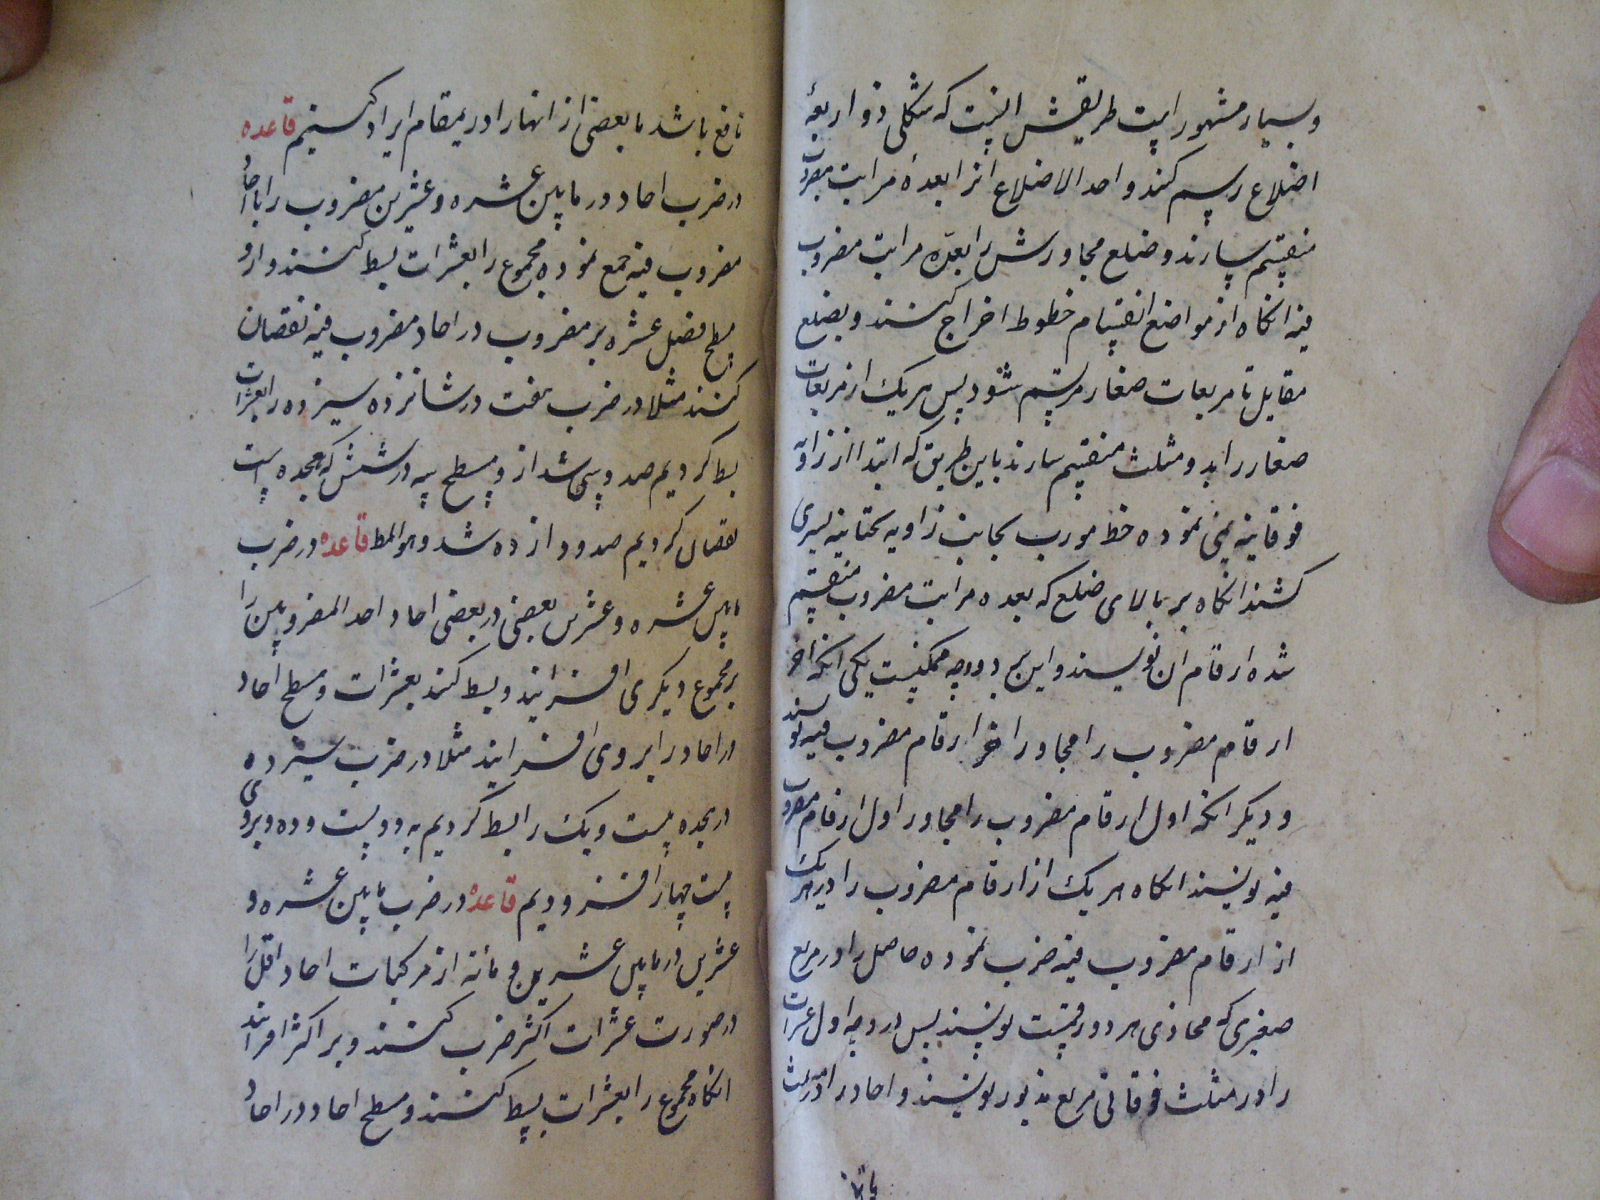 و بسیار مشهور است طریقش اینست که شکلی ذو اربعة
اضلاع رسم کنند و احد الاضلاع انرا بعدهٔ مراتب مضروب
منقسم سازند و ضلع مجاورش را بعدّه مراتب مضروب
فیه انکاه از مواضع انقسام خطوط اخراج کنند و بضلع
مقابل تا مربعات صغار مرتسم شود پس هر یک از مربعات
صغار را بدو مثلث منقسم سازند باین طریق که ابتدا از زاویه
فوقانیه یمنی نموده خط مورب بجانب زاویه تحتانیه یسری
کشند انکاه بر بالای ضلع که بعده مراتب مضروب منقسم
شده ارقام ان نویسند و این بر دو وجه ممکنست یکی انکه اخر
ارقام مضروب را مجاور اخر ارقام مضروب فیه نویسند
و دیکر انکه اول ارقام مضروب را مجاور اول ارقام مضروب
فیه نویسند انکاه هر یک از ارقام مضروب را در هر یک
از ارقام مضروب فیه ضرب نموده حاصل را در مربع
صغیری که محاذی هر دو رقمست نویسند پس در وجه اول عشرات
را در مثلث فوقانی مربع مذبور نویسند و احاد را در مثلث
نافع باشد ما بعضی از انها را در ینمقام ایراد کنیم قاعده
در ضرب احاد در ما بین عشره و عشرین مضروب را با احاد
مضروب فیه جمع نموده مجموع را بعشرات بسط کنند و از و
مسطح فضل عشره بر مضروب در احاد مضروب فیه نقصان
کنند مثلا در ضرب هفت در شانزده سیزده را بعشرات
بسط کردیم صد و سی شد از و مسطح سه در شش که هجده است
نقصان کردیم صد و دوازده شد و هو المط قاعده در ضرب
مابین عشره و عشرین بعضی در بعضی احاد احد المضروبین را
بر مجموع دیکری افزایند و بسط کنند بعشرات و مسطح احاد
در احاد را بر وی افزایند مثلا در ضرب سیزده
در هجده بیست و یک را بسط کردیم به دویست و ده و بر وی
بیست چهار افزودیم قاعده در ضرب مابین عشره و
عشرین در مابین عشرین و مائه از مرکبات احاد اقل را
در صورت عشرات اکثر ضرب کنند و بر اکثر افزایند
انکاه مجموع را بعشرات بسط کنند و مسطح احاد در احاد